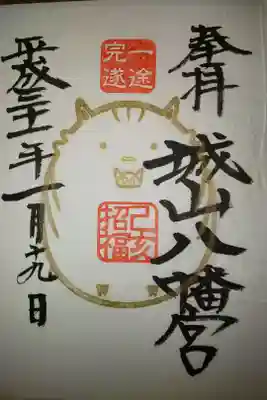 奉拝
城山八幡宮
一途
完遂
己亥
招福
平成三十一年一月十九日